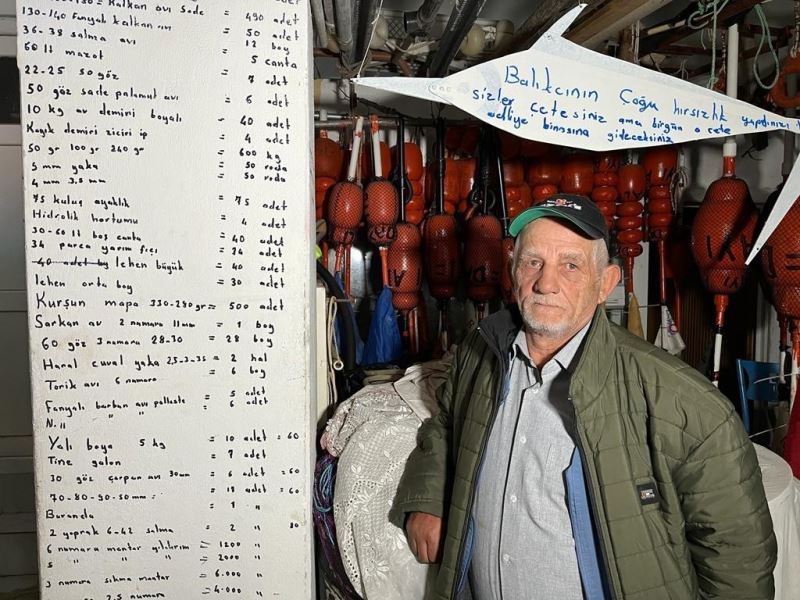 Kalkan avı sade = 490 adet
130-140 fanyalı kalkan = 50 adet
36-38 salma avı = 12 boy
60 lt mazot = 5 canta
22-25 50 göz = 7 adet
50 göz sade palamut avı = 6 adet
10 kg av demiri boyalı = 40 adet
Kayık demiri zinciri ip = 4 adet
50 gr 100 gr 240 gr = 600 kg
5 mm yaka = 50 roda
4 mm 3,5 mm = 50 roda
75 kuluç ayaklık = 75 adet
Hidrolik hortumu = 4 adet
30-60 lt boş canta = 40 adet
34 parca yarım fıçı = 34 adet
lehen büyük = 40 adet
lehen orta boy = 30 adet
Kurşun mapa 330-280 gr = 500 adet
Sarkan av 2 numara 11mm = 1 boy
60 göz 3 numara 28-30 = 28 boy
Haral cuval yaka = 2 hal
Torik avı 6 numara = 6 boy
Fanyalı barbun avı = 5 adet
N. ıı " " = 6 adet
Yalı boya 5 kg = 10 adet = 60
Tine galon = 7 adet
30 göz çarpan avı 30mm = 6 adet = 60
70-80-90-50 mm = 18 adet = 60
Buranda = 1 "
2 yoprak 6-42 salma = 2 " 80
6 numara mantar yıldırım = 1200 "
5 " " " = 2000 "
3 numara sıkma mantar = 6.000 "
2,5 numara = 4.000 "
Balıkcının Çoğu hırsızlık yapdınızı
sizler cetesiniz ama birgün o cete
adliye binasına gideceksiniz